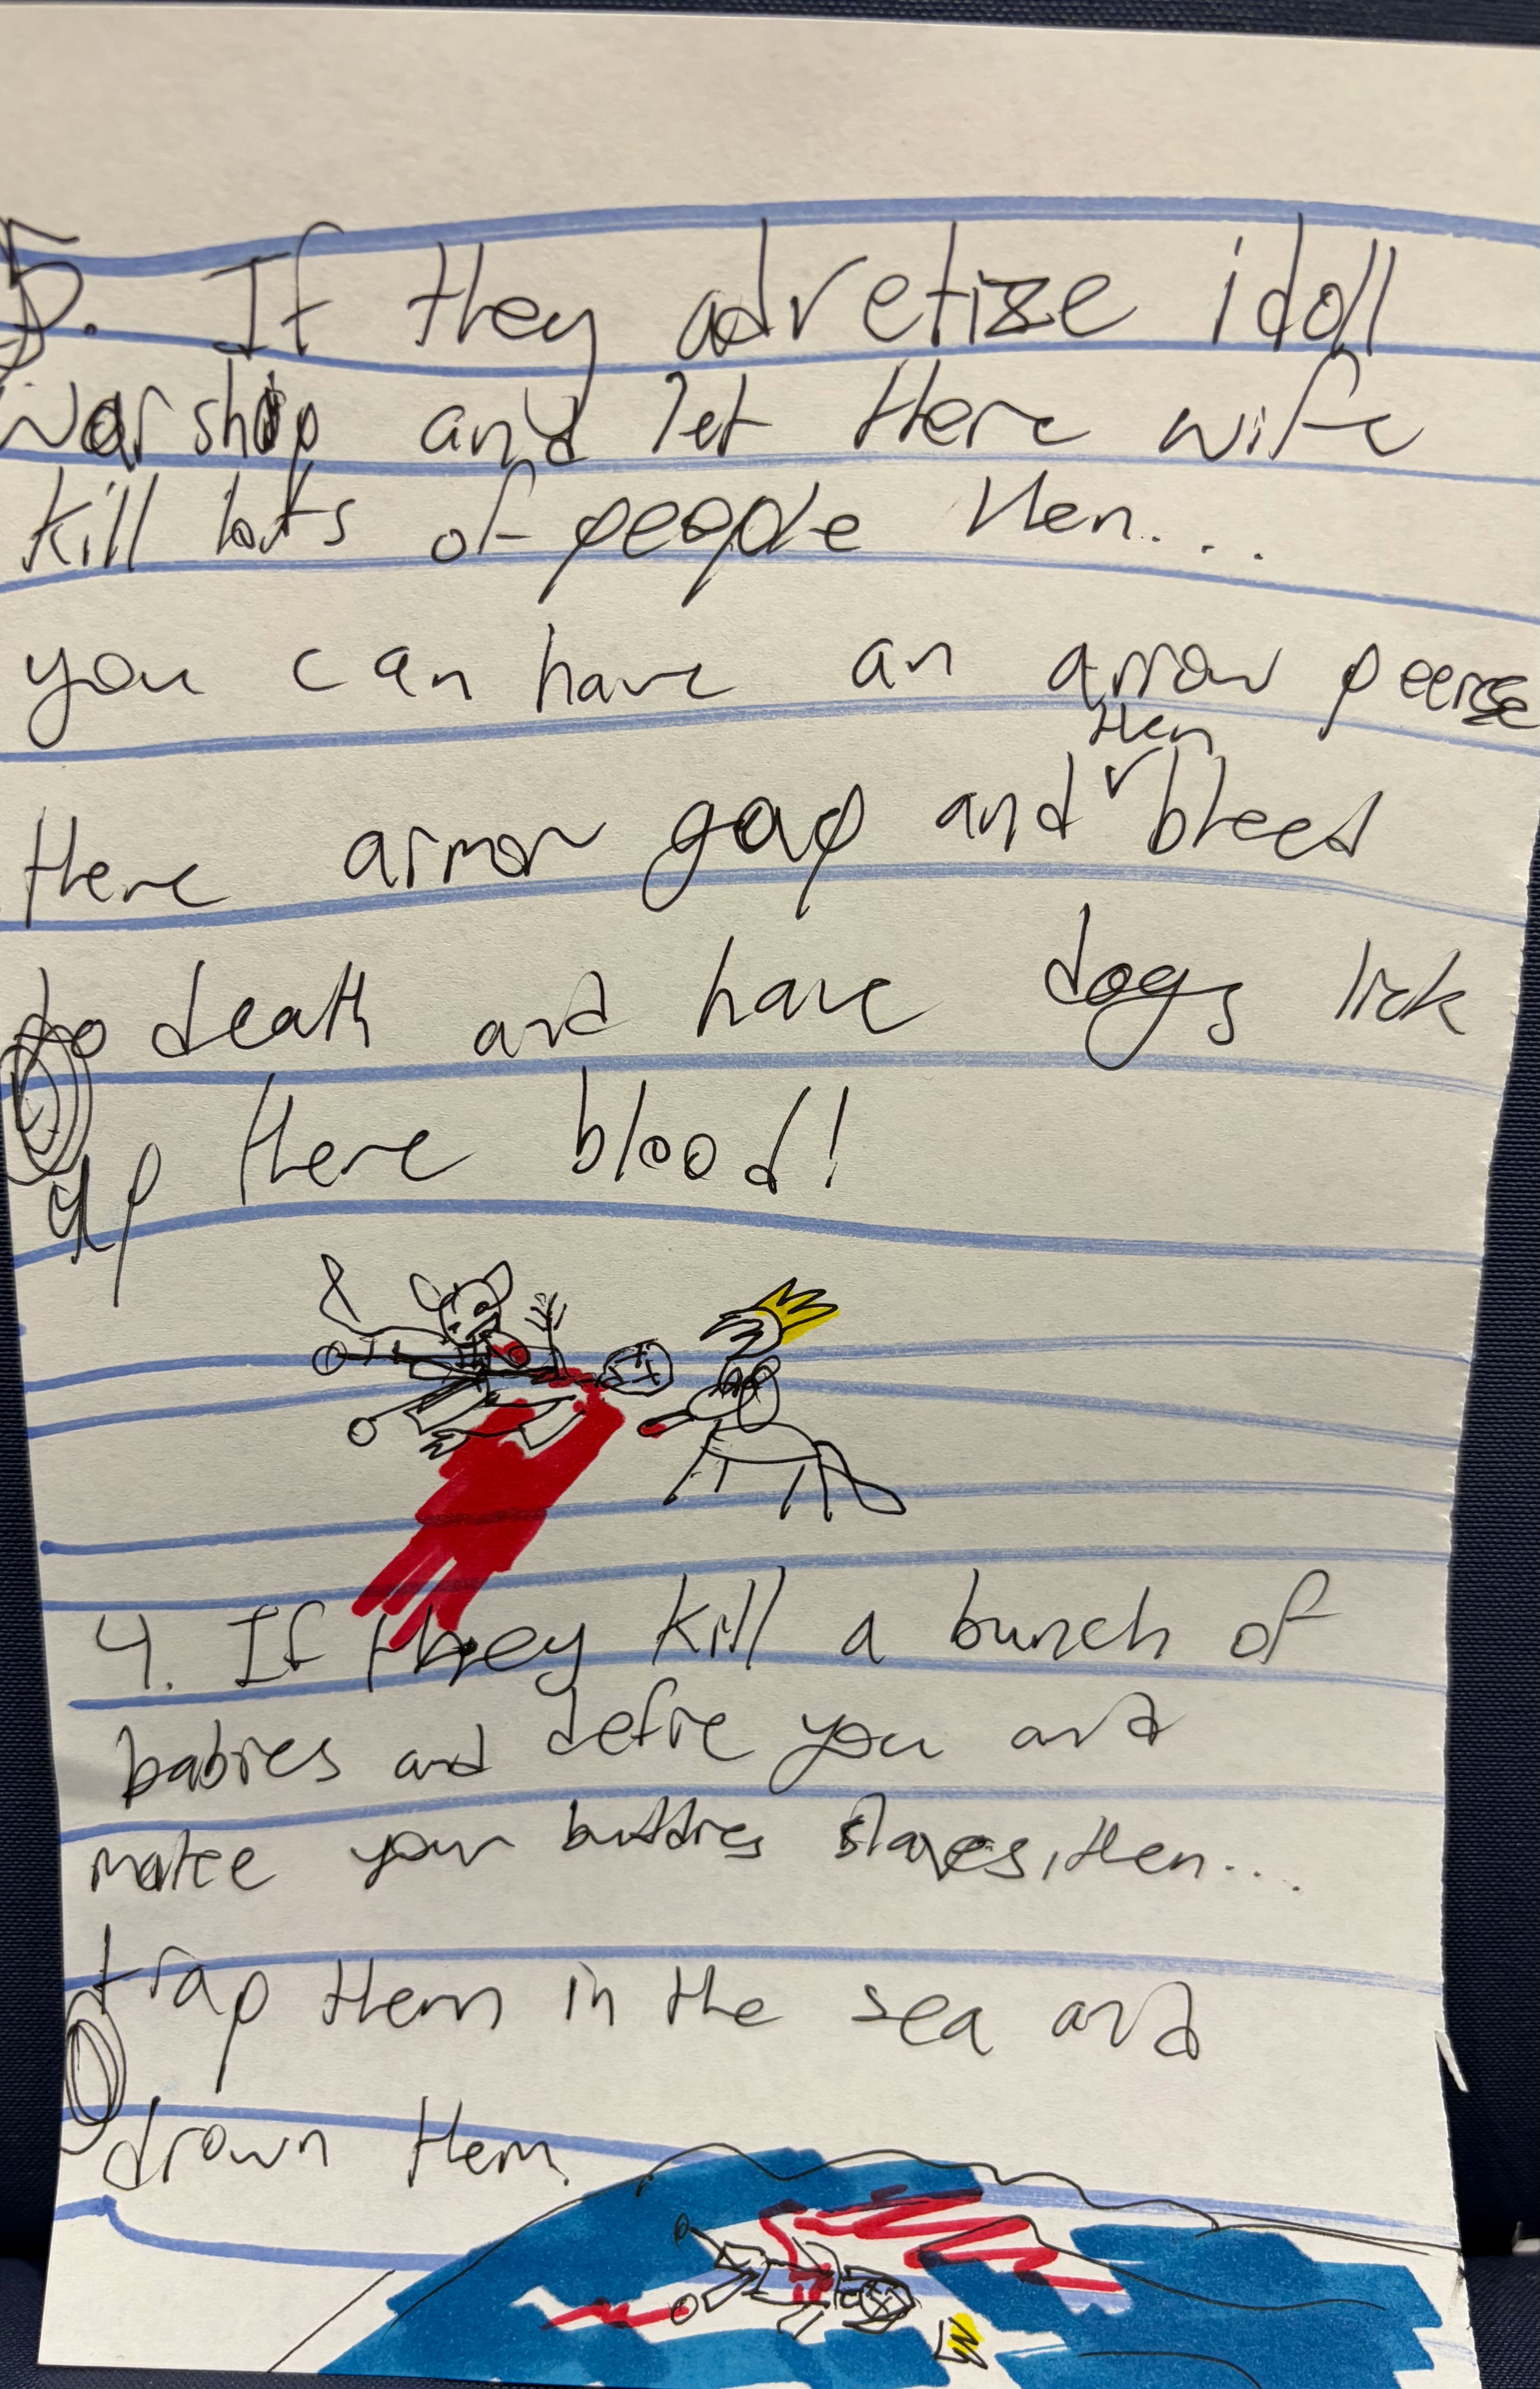 5. If they advretize idoll
warship and let there wife
kill lots of people then...
you can have an arrow peerse
then
there armor gap and ✓ bleed
to death and have dogs lick
up there blood!
4. If they kill a bunch of
babies and defie you and
make your buddies slaves, then...
trap them in the sea and
drown them.